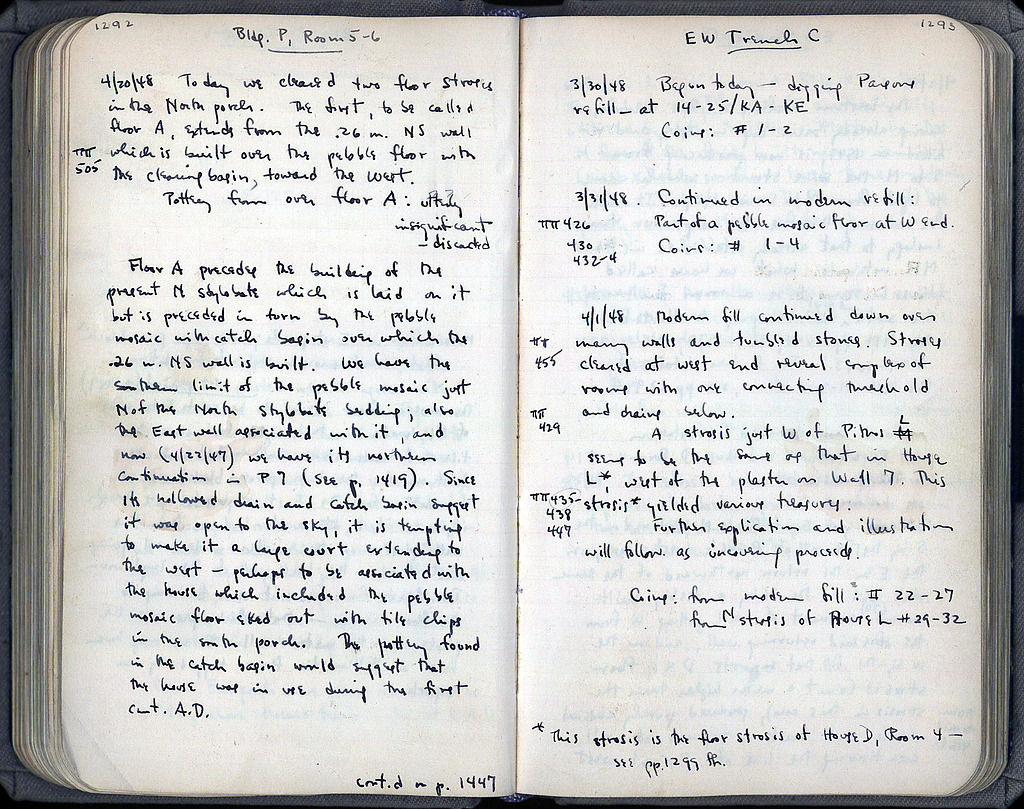 1292
Bldg. P, Room 5-6
4/20/48 Today we cleared two floor stroses
in the North porch. The first, to be called
floor A, extends from the .26 m. NS wall
which is built over the pebble floor with
ΠΠ 505
the cleaning basin, toward the West.
Pottery from over floor A: utterly
insignificant
— discarded
Floor A precedes the building of the
present N stylobate which is laid on it
but is preceded in turn by the pebble
mosaic with catch basin over which the
.26 m. NS wall is built. We have the
southern limit of the pebble mosaic just
N of the North stylobate bedding; also
the East wall associated with it, and
now (4/22/47) we have its northern
continuation in P 7 (see p. 1419). Since
its hollowed drain and catch basin suggest
it was open to the sky, it is tempting
to make it a large court extending to
the west — perhaps to be associated with
the house which included the pebble
mosaic floor eked out with tile chips
in the south porch. The pottery found
in the catch basin would suggest that
the house was in use during the first
cent. A.D.
cont.d on p. 1447
1293
EW Trench C
3/30/48 Began today — digging Parsons
refill — at 14-25/KA-KE
Coins: # 1-2
3/31/48. Continued in modern refill:
ΠΠ 426 Part of a pebble mosaic floor at W end.
430 Coins: # 1-4
432-4
4/1/48 Modern fill continued down over
many walls and tumbled stones. Stroses
ΠΠ 455
cleared at west end reveal complex of
rooms with one connecting threshold
and drains below.
ΠΠ 429
A strosis just W of Pithos L
seems to be the same as that in House
L*, west of the plaster on Wall 7. This
ΠΠ 435-438 strosis* yielded various treasures.
447 Further explication and illustration
will follow as uncovering proceeds.
Coins: from modern fill: # 22-27
from N strosis of House L # 29-32
* This strosis is the floor strosis of House D, Room 4 —
see pp. 1299 ff.